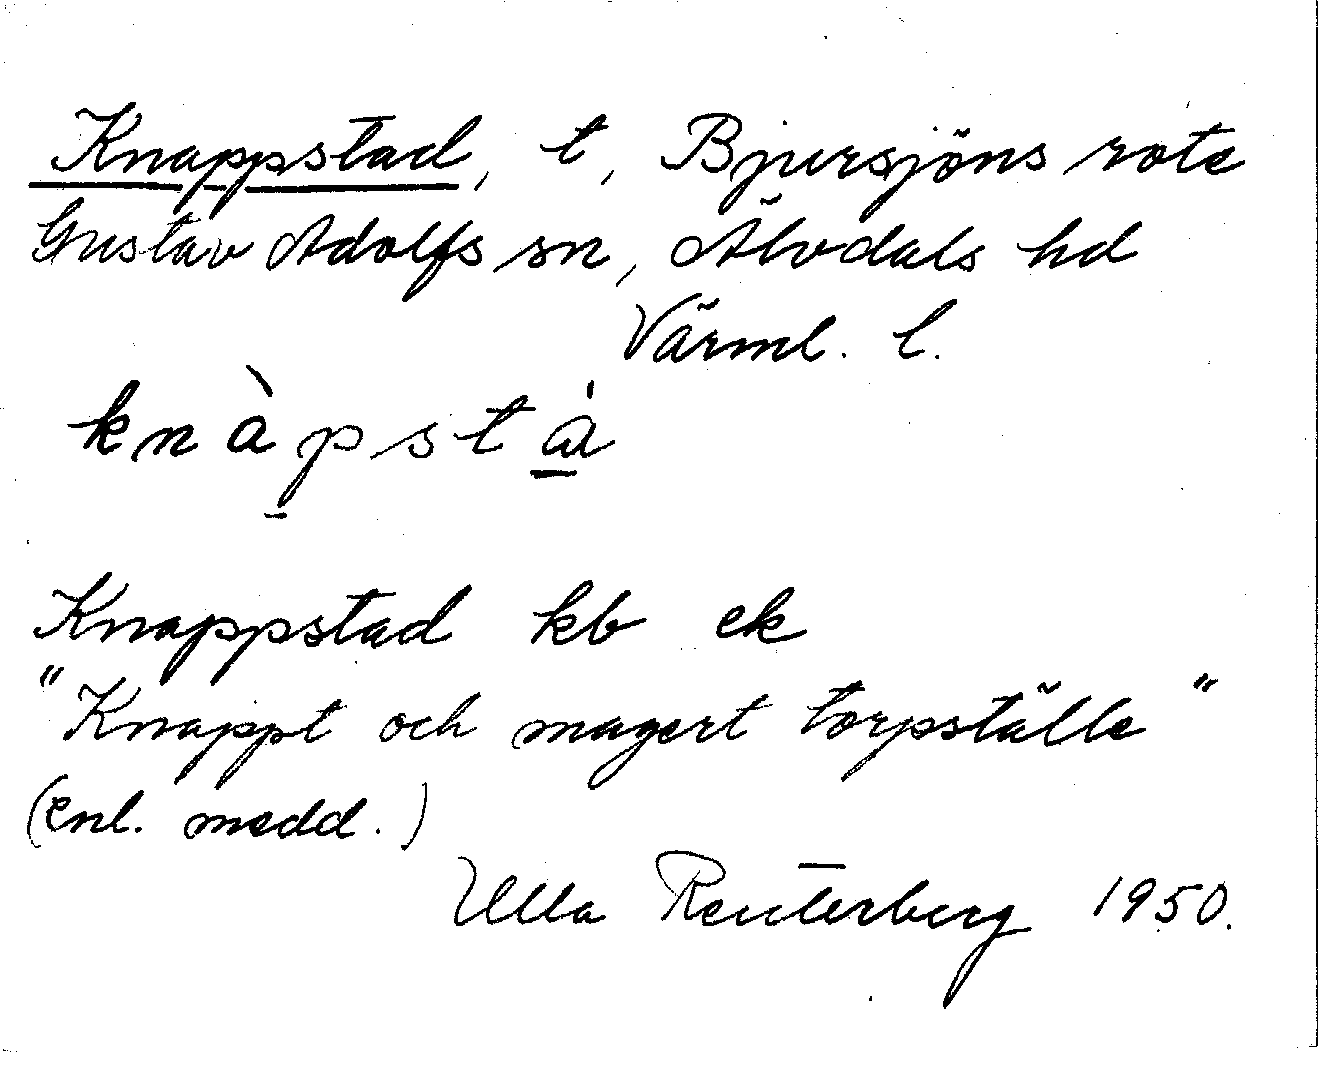 Knappstad, t, Bjursjöns rote
Gustav Adolfs sn, Älvdals hd
Värml. l.
knàp̠stȧ̠
Knappstad kb ek
"Knappt och magert torpställe"
(enl. medd.)
Ulla Reuterberg 1950.